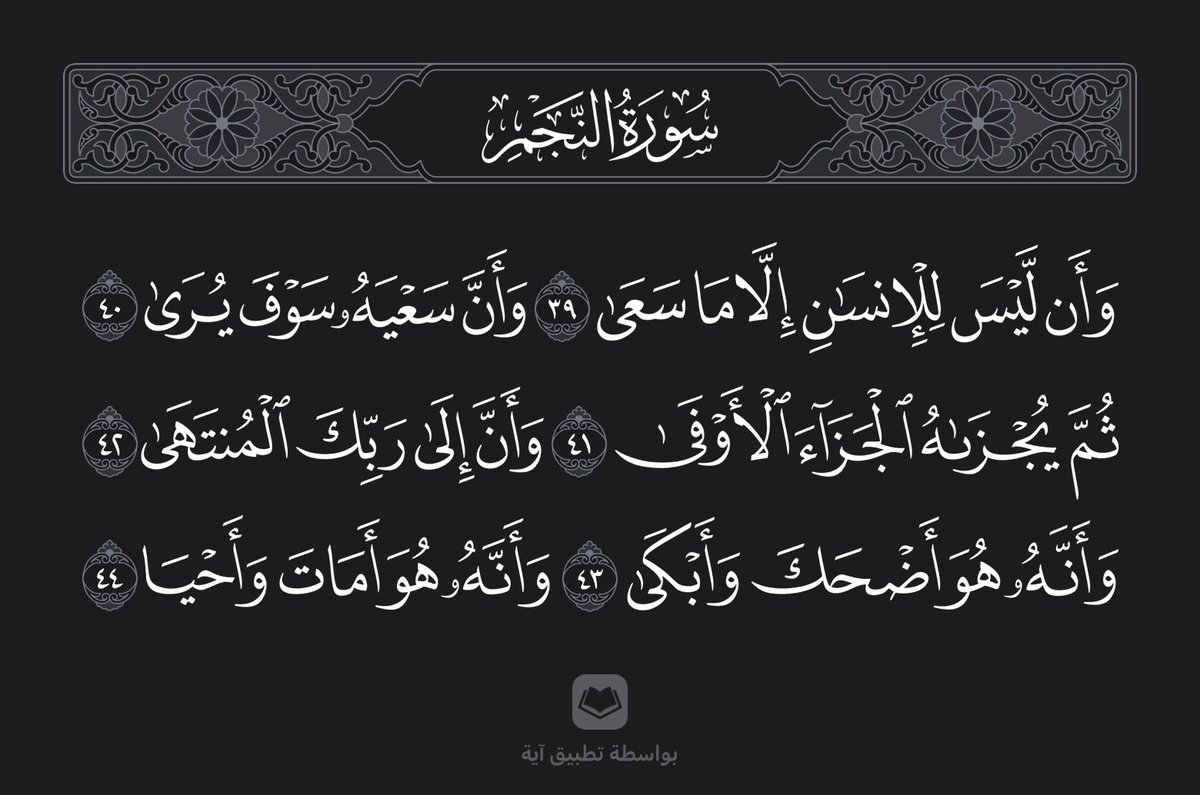 سُورَةُ النَّجْمِ
وَأَن لَّيْسَ لِلْإِنسَٰنِ إِلَّا مَا سَعَىٰ ٣٩ وَأَنَّ سَعْيَهُۥ سَوْفَ يُرَىٰ ٤٠
ثُمَّ يُجْزَىٰهُ ٱلْجَزَآءَ ٱلْأَوْفَىٰ ٤١ وَأَنَّ إِلَىٰ رَبِّكَ ٱلْمُنتَهَىٰ ٤٢
وَأَنَّهُۥ هُوَ أَضْحَكَ وَأَبْكَىٰ ٤٣ وَأَنَّهُۥ هُوَ أَمَاتَ وَأَحْيَا ٤٤
بواسطة تطبيق آية